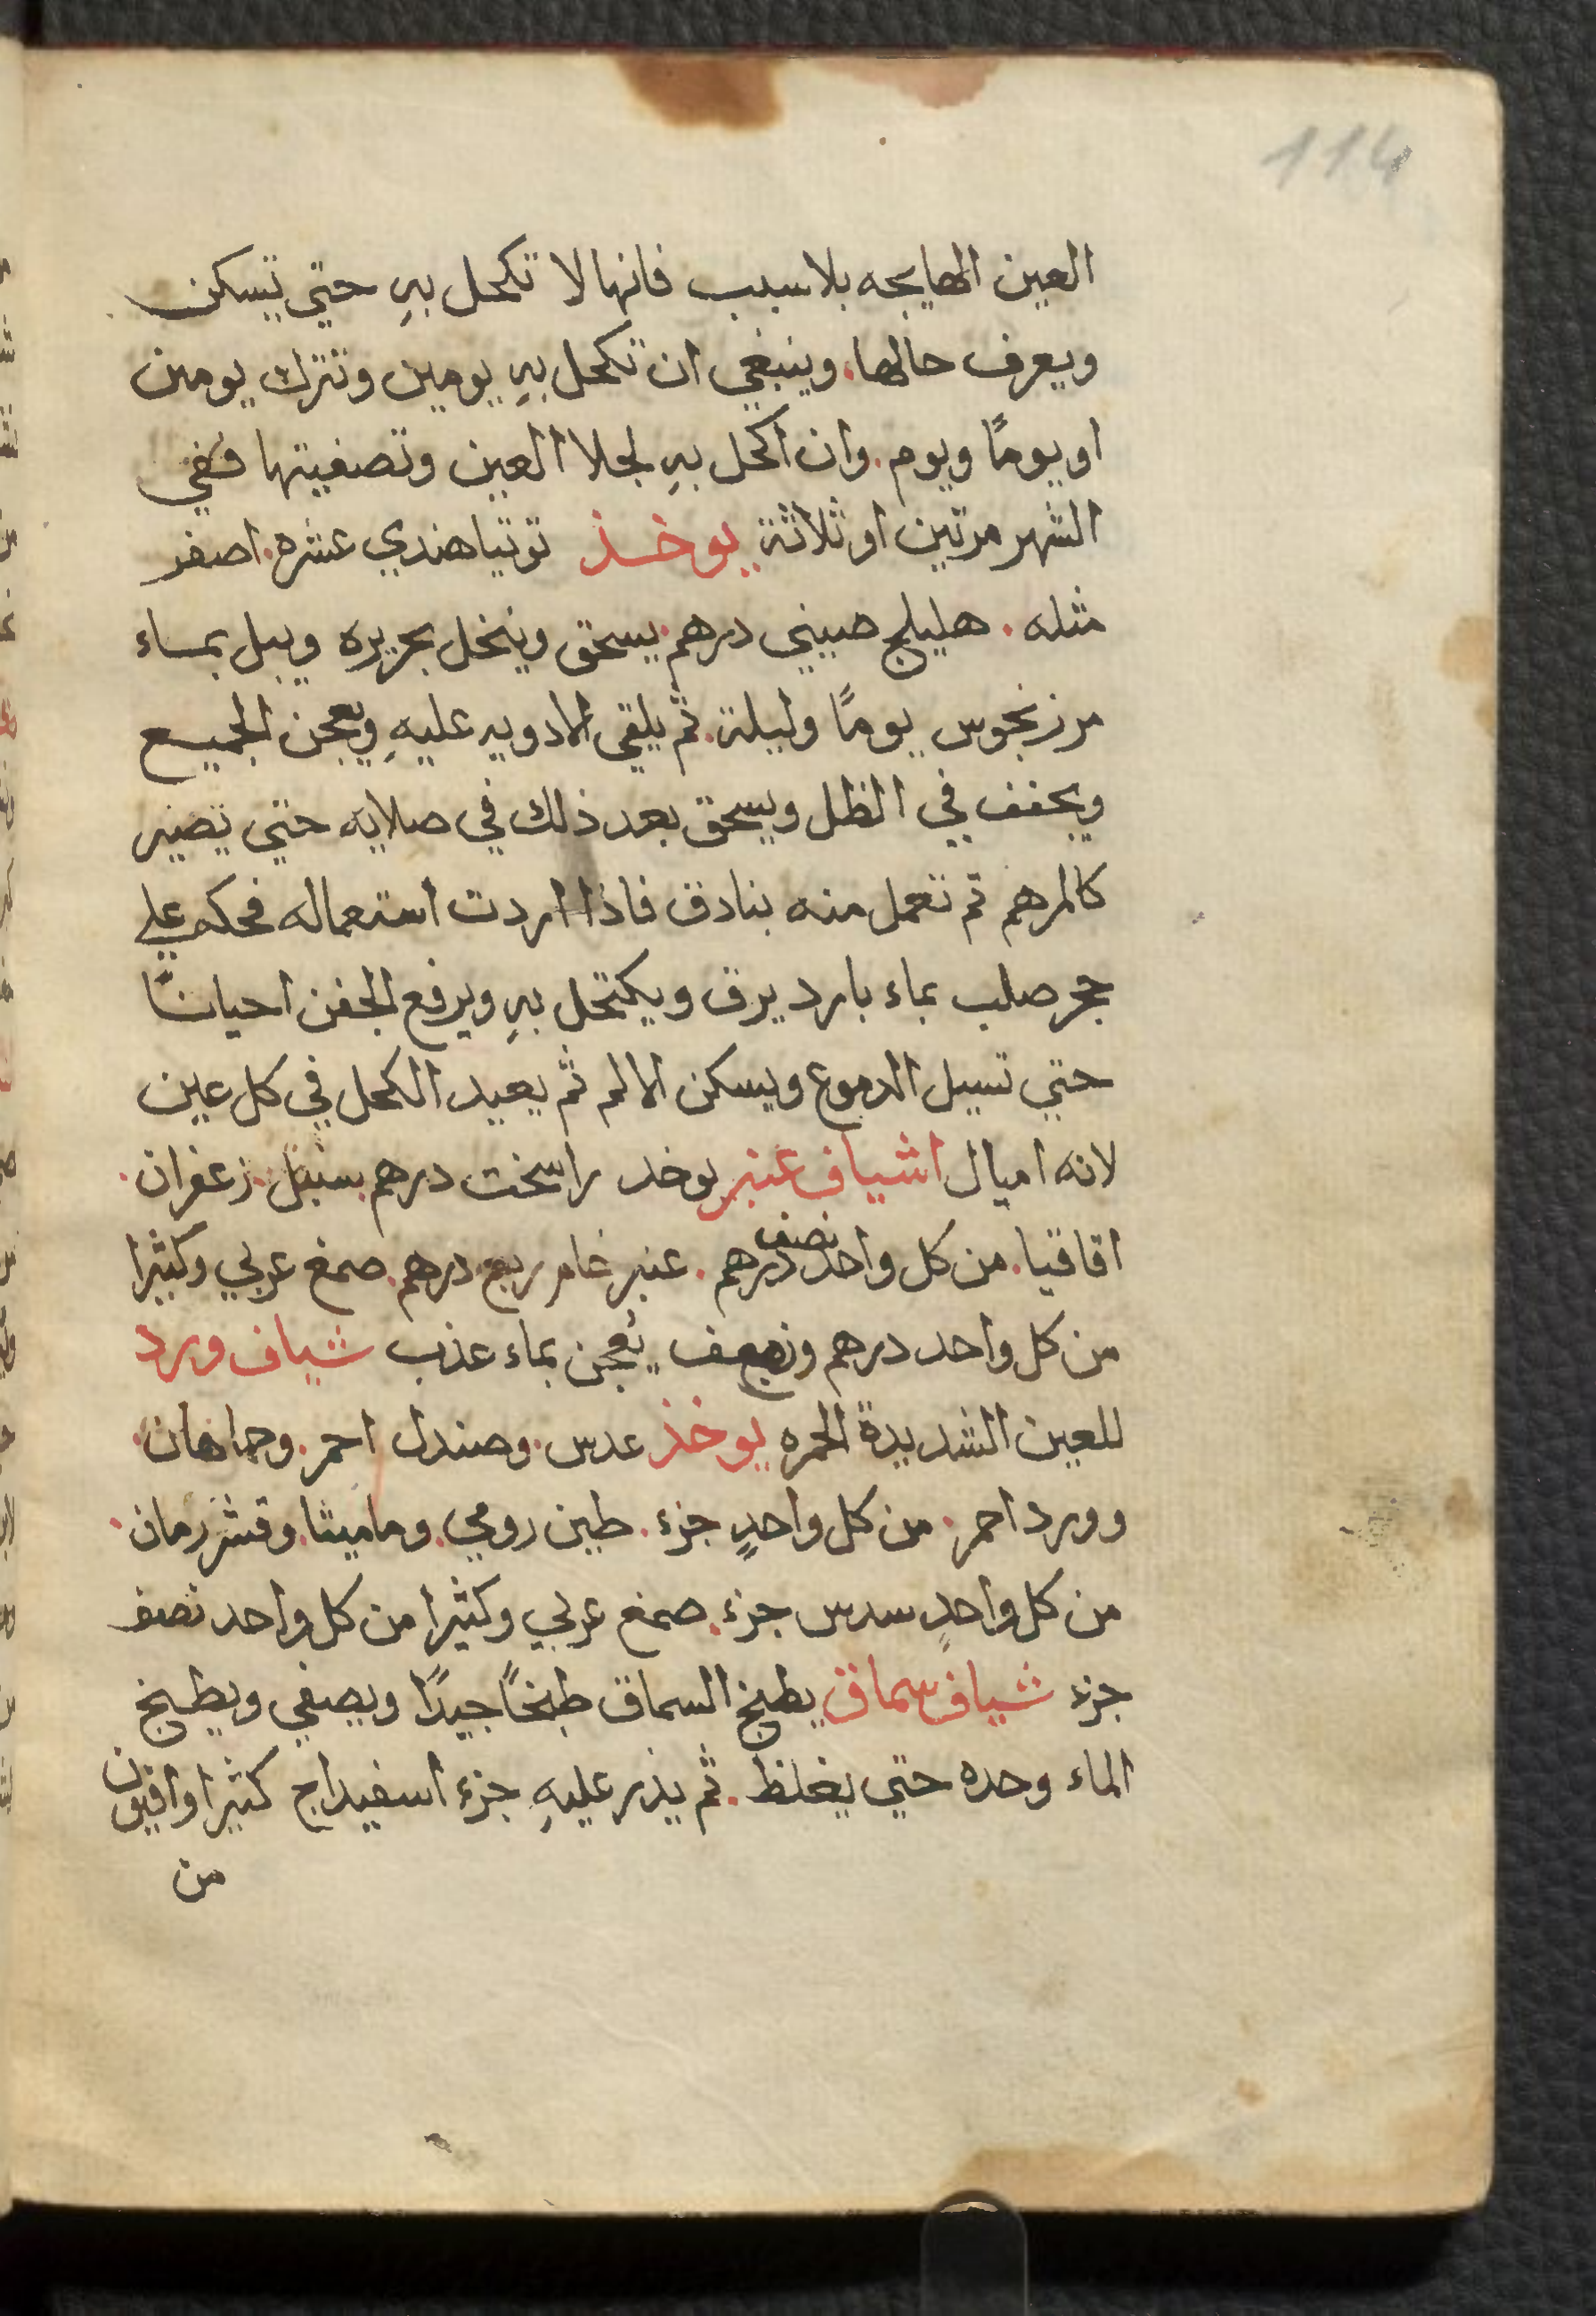 114
العين الهايجه بلا سبب فانها لا تكحل بهِ حتي تسكن
ويعرف حالها. وينبغي ان تكحل بهِ يومين وتترك يومين
او يومًا ويوم. وان اكحل بهِ لجلا العين وتصفيتها ففي
الشهر مرتين او ثلاثة يوخذ توتيا هندي عشره. اصفر
مثله. هليلج صيني درهم. يسحق وينخل بحريره ويبل بماء
مرزنجوس يومًا وليلة. ثم يلقي الادويه عليهِ ويعجن الجميع
ويجفف في الظل ويسحق بعد ذلك في صلايه حتي تصير
كالمرهم ثم تعمل منه بنادق فاذا اردت استعماله فحكه علي
حجر صلب بماء بارد يرق ويكتحل بهِ ويرفع الجفن احيانًا
حتي تسيل الدموع ويسكن الالم ثم يعيد الكحل في كل عين
لانه اميال اشياف عنبر يوخد راسخت درهم. سنبل. زعفران.
اقاقيا. من كل واحد نصف درهم. عنبر خام ربع درهم. صمغ عربي وكثيرا
من كل واحد درهم ونصف يُعجن بماء عذب شياف ورد
للعين الشديدة الحمره يوخذ عدس. وصندل احمر. وحماهان.
وورد احمر. من كل واحدٍ جزء. طين رومي. وماميثا. وقشر رمان.
من كل واحدٍ سدس جزء. صمغ عربي وكثيرا من كل واحد نصف
جزء شياف سماق يطبخ السماق طبخًا جيدًا ويصفي ويطبخ
الماء وحده حتي يغلظ. ثم يذر عليهِ جزء اسفيداج كثيرا وافيون
من